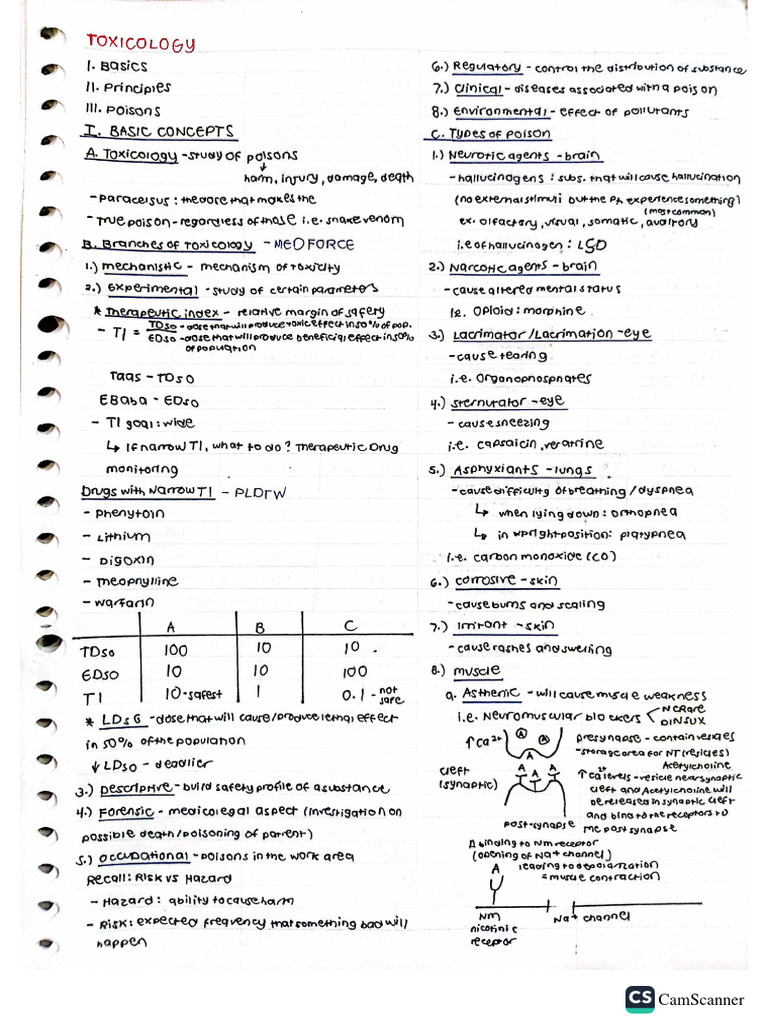 TOXICOLOGY
I. Basics
II. Principles
III. Poisons
I. BASIC CONCEPTS
A. Toxicology - study of poisons
↓
harm, injury, damage, death
- Paracelsus: the dose that makes the
- True poison - regardless of those i.e. snake venom
B. Branches of toxicology - MEDFORCE
1.) mechanistic - mechanism of toxicity
2.) Experimental - study of certain parameters
* Therapeutic index - relative margin of safety
- TI = TD50 - dose that will produce toxic effect in 50% of pop.
ED50 - dose that will produce beneficial effect in 50%
of population
Taas - TD50
EBaba - ED50
- TI goal: wide
↳ If narrow TI, what to do? Therapeutic Drug
monitoring
Drugs with Narrow TI - PLDTW
- Phenytoin
- Lithium
- Digoxin
- Theophylline
- Warfarin
A B C
TD50 100 10 10 .
ED50 10 10 100
TI 10 - safest 1 0.1 - not safe
* LD50 - dose that will cause/produce lethal effect
in 50% of the population
↓ LD50 - deadlier
3.) Descriptive - build safety profile of a substance
4.) Forensic - medicolegal aspect (investigation on
possible death/poisoning of parent)
5.) Occupational - poisons in the work area
Recall: Risk vs Hazard
- Hazard: ability to cause harm
- Risk: expected frequency that something bad will
happen
6.) Regulatory - control the distribution of substance
7.) Clinical - diseases associated with a poison
8.) Environmental - effect of pollutants
C. Types of Poison
1.) Neurotic agents - brain
- hallucinogens: subs. that will cause hallucination
(no external stimuli but the Px experience something)
(most common)
ex. olfactory, visual, somatic, auditory
i.e of hallucinogen: LSD
2.) Narcotic agents - brain
- cause altered mental status
ie. Opioid: morphine
3.) Lacrimator/Lacrimation - eye
- cause tearing
i.e. Organophosphates
4.) Sternutator - eye
- cause sneezing
i.e. capsaicin, veratrine
5.) Asphyxiants - lungs
- cause difficulty of breathing/dyspnea
↳ when lying down: orthopnea
↳ in upright position: platypnea
i.e. carbon monoxide (CO)
6.) Corrosive - skin
- cause burns and scaling
7.) Irritant - skin
- cause rashes and swelling
8.) muscle
a. Asthenic - will cause muscle weakness
i.e. Neuromuscular blockers < NCRare
DINSUX
↑Ca2+ A A
A
presynapse - contain vesicles
- storage area for NT (vesicles)
Acetylcholine
cleft
(synaptic)
A A A
↑ Ca2+ levels - vesicle near synaptic
cleft and Acetylcholine will
be released in synaptic cleft
and bind to the receptors to
the post synapse
post-synapse
A binding to Nm receptor
(opening of Na+ channel)
leading to depolarization
= muscle contraction
A
Nm
nicotinic
receptor
Na+ channel
CS CamScanner